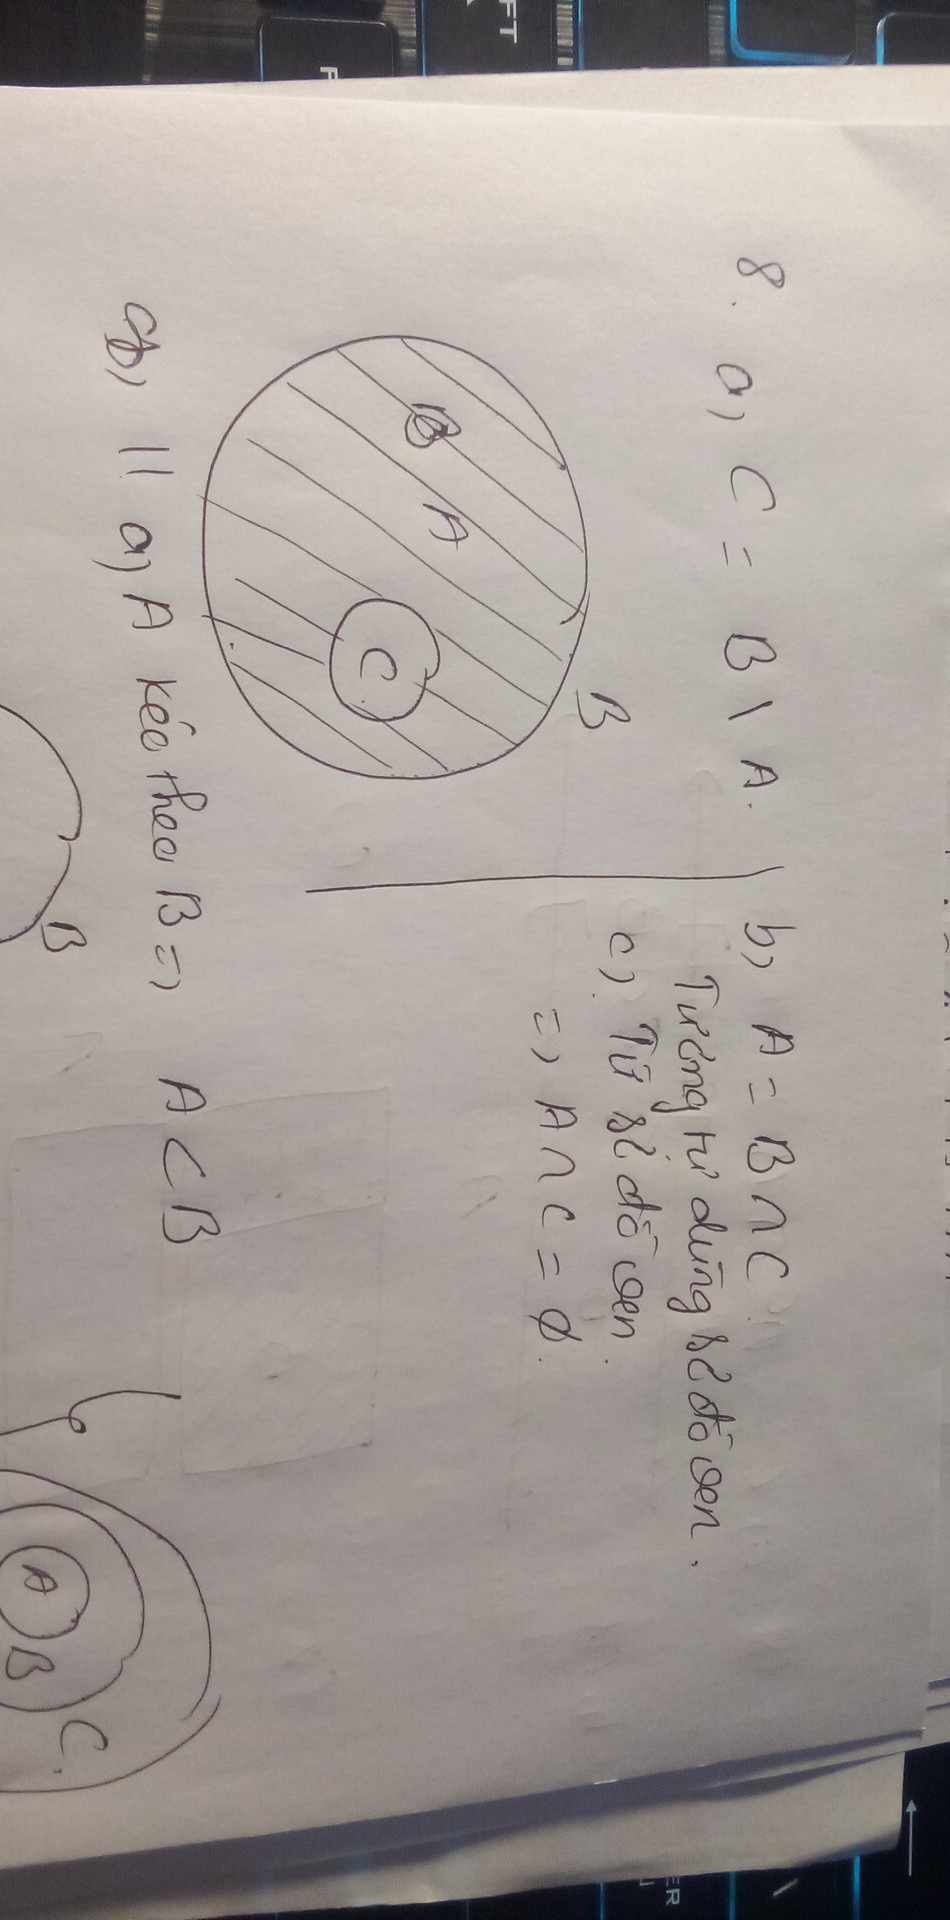 8. a, C = B \ A.
B
A
C
b, A = B ∩ C
Tương tự dùng sơ đồ ven.
c). Từ sơ đồ ven.
=> A ∩ C = ∅.
11 a, A kéo theo B => A ⊂ B
B
A B C.
FT